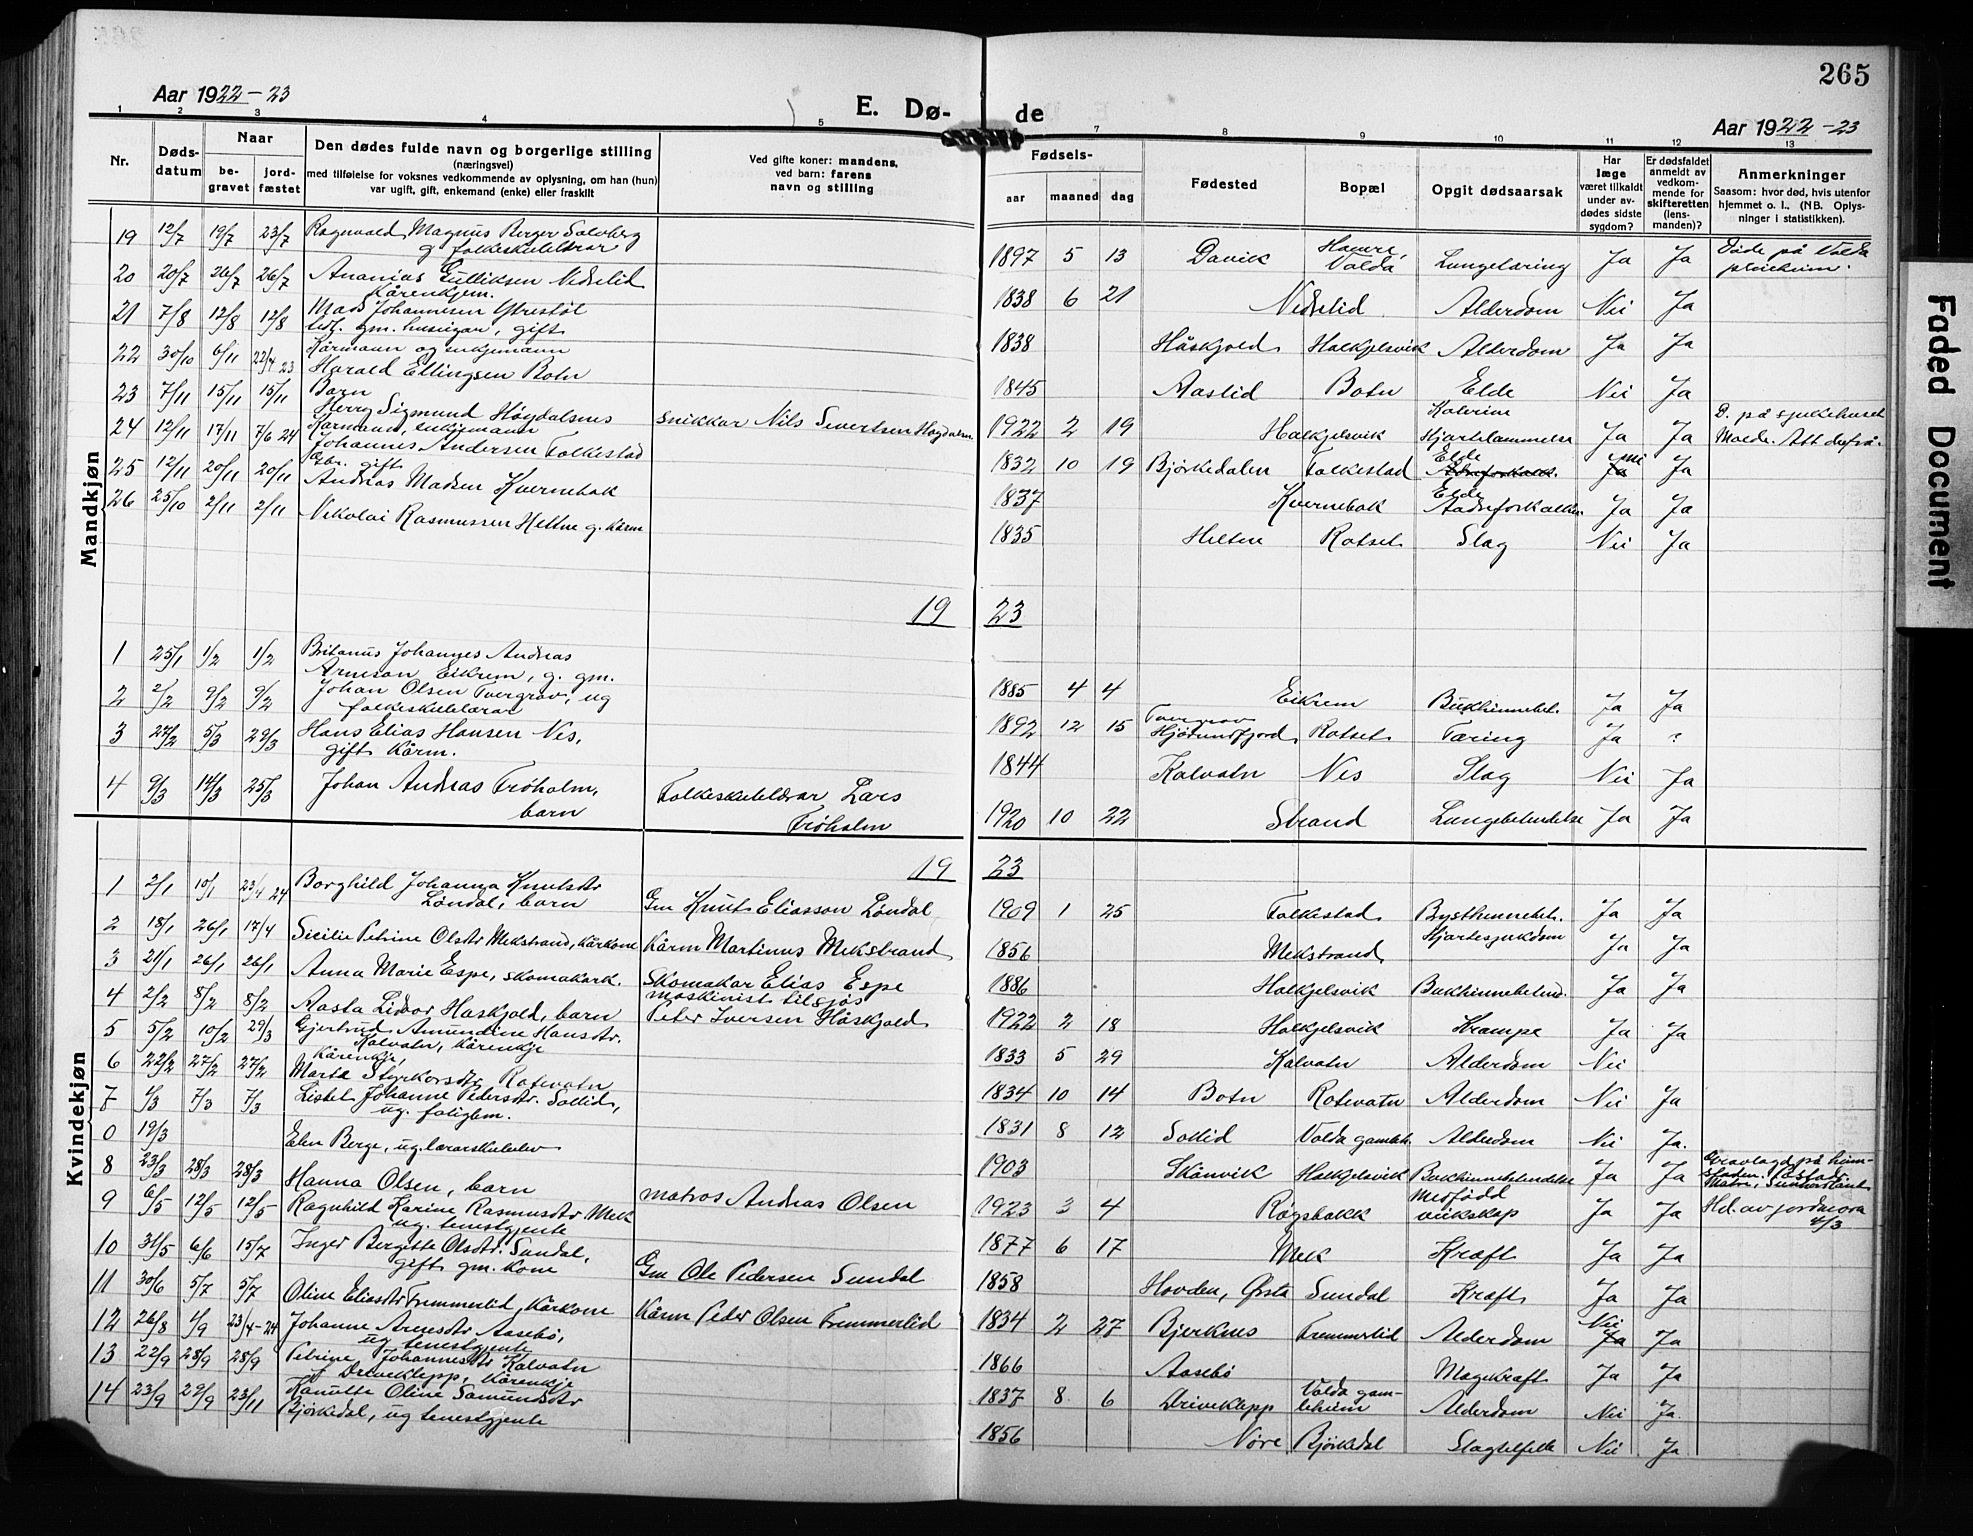 265
Aar 1922-23
E. Dø-
de
Aar 1922-23
1 2 3 4 5 7 8 9 10 11 12 13
Nr.
Døds-
datum
Naar
be-
gravet
jord-
fæstet
Den dødes fulde navn og borgerlige stilling
(næringsvei)
med tilføielse for voksnes vedkommende av oplysning, om han (hun)
var ugift, gift, enkemand (enke) eller fraskilt
Ved gifte koner: mandens,
ved barn: farens
navn og stilling
Fødsels-
aar maaned dag
Fødested
Bopæl
Opgit dødsaarsak
Har
læge
været tilkaldt
under av-
dødes sidste
sygdom?
Er dødsfaldet
anmeldt av
vedkom-
mende for
skifteretten
(lens-
manden)?
Anmerkninger
Saasom: hvor død, hvis utenfor
hjemmet o. l., (NB. Oplys-
ninger i statistikken).
Mandkjøn
19 12/7 19/7 23/7 Ragnvald Magnus Berger Solvberg
g folkeskulelærar
1897 5 13 Davik Hamre Volda Lungetæring Ja Ja Døde på Volda
pleieheim.
20 20/7 26/7 26/7 Ananias Gulliksen Nedrelid
Kårenkjem.
1838 6 21 Nedrelid Alderdom Nei Ja
21 7/8 12/8 12/8 Mads Johannesen Ytrestøl
gm. huseigar, gift
1838 Håskjold Halkjelsvik Alderdom Ja Ja
22 30/10 6/11 22/4 23 Kårmann og enkjemann
Harald Ellingsen Botn
1845 Aaslid Botn Elde Nei Ja
23 7/11 15/11 15/11 Barn
Herry Sigmund Høydalsnes
snikkar Nils Sivertsen Høydalsn.
1922 2 19 Halkjelsvik Hjartelammelse Ja Ja D. på sjukehuset
Molde. Att derfrå.
24 12/11 17/11 7/6 24 Kårmann, enkjemann
Johannes Andersen Folkestad
1832 10 19 Bjørkedalen Folkestad Elde nei Ja
25 12/11 20/11 20/11 Gbr. gift
Andreas Madsen Kvernebak
1837 Kvernebak Elde
Aadreforkalkn. Ja Ja
26 25/10 2/11 2/11 Nikolai Rasmussen Heltne g. kårm
1835 Heltne Rotset Slag Nei Ja
19 23
1 25/1 1/2 1/2 Britanus Johannes Andreas
Arneson Eikrem, g. gm.
1885 4 4 Eikrem Bukhinnebet. Ja Ja
2 2/2 9/2 9/2 Johan Olsen Tvergrov, ug
folkeskulelærar
1892 12 15 Tvergrov
Hjørundfjord Rotset Tæring Ja ?
3 27/2 5/3 29/3 Hans Elias Hansen Nes,
gift kårm.
1844 Kalvatn Nes Slag Nei Ja
4 9/3 14/3 25/3 Johan Andreas Frøholm,
barn
Folkeskulelærar Lars
Frøholm
1920 10 22 Strand Lungebetendelse Ja Ja
Kvindekjøn
19 23
1 2/1 10/1 23/4 24 Borghild Johanna Knutsdtr
Løndal, barn
Gm Knut Eliasson Løndal
1909 1 25 Folkestad Bysthinnebet. Ja Ja
2 18/1 26/1 17/4 Sicilie Petrine Olsdtr Mekstrand, kårkone
Kårm Martinus Mekstrand
1856 Mekstrand Hjartesjukdom Ja Ja
3 21/1 26/1 26/1 Anna Marie Espe, skomakark.
Skomakar Elias Espe
1886 Halkjelsvik Bukhinnebetend. Ja Ja
4 2/2 8/2 8/2 Aasta Lidvor Haskjold, barn
maskinist tilsjøs
Peter Iversen Håskjold
1922 2 18 Halkjelsvik Krampe Ja Ja
5 5/2 10/2 29/3 Gjertrud Amundine Hansdtr.
Kalvatn, kårenkje
1833 5 29 Kalvatn Alderdom Nei
6 22/2 27/2 27/2 Kårenkje,
Marta Styrkorsdtr Rotevatn
1834 10 14 Botn Rotevatn Alderdom Nei Ja
7 1/3 7/3 7/3 Lisbet Johanne Pedersdtr. Sollid,
ug. fatiglem.
1831 8 12 Sollid Volda gamleh. Alderdom Nei Ja.
0 19/3 Elen Berge, ug. lærarskulelev
1903 Skånvik Halkjelsvik Bukhinnebetendelse Ja Ja Gravlagd på heim-
staden.
8 23/3 28/3 28/3 Hanna Olsen, barn
matros Andreas Olsen
1923 3 4 Røysbakk Medfødd
veikskap Ja Ja Hd. av jordmora
4/3
9 6/5 12/5 12/5 Ragnhild Karine Rasmusdtr Mek
ug. tenestgjente
1877 6 17 Mek Kræft Ja Ja
10 31/5 6/6 15/7 Inger Bergitte Olsdtr. Sundal,
gift gm. kone
Gm Ole Pedersen Sundal
1858 Hovden, Ørsta Sundal Kræft Ja Ja
11 30/6 5/7 5/7 Oline Eliasdtr Fremmerlid, kårkone
Kårm Peder Olsen Fremmerlid
1834 2 27 Bjerknes Fremmerlid Alderdom Nei Ja Ja
12 26/8 1/9 23/4-24 Johanne Arnesdtr Aasebø,
ug tenestgjente
1866 Aasebø Magekræft Ja Ja
13 22/9 28/9 28/9 Petrine Johannesdtr Kalvatn
f Driveklepp, kårenkje
1837 8 6 Driveklepp Volda gam-
leheim Alderdom Nei Ja.
14 23/9 29/9 23/11 Kanutte Oline Samundsdtr
Bjørkedal, ug tenestgjente
1856 Nøre Bjørkdal Slagtilfelle Nei Ja
Faded Document